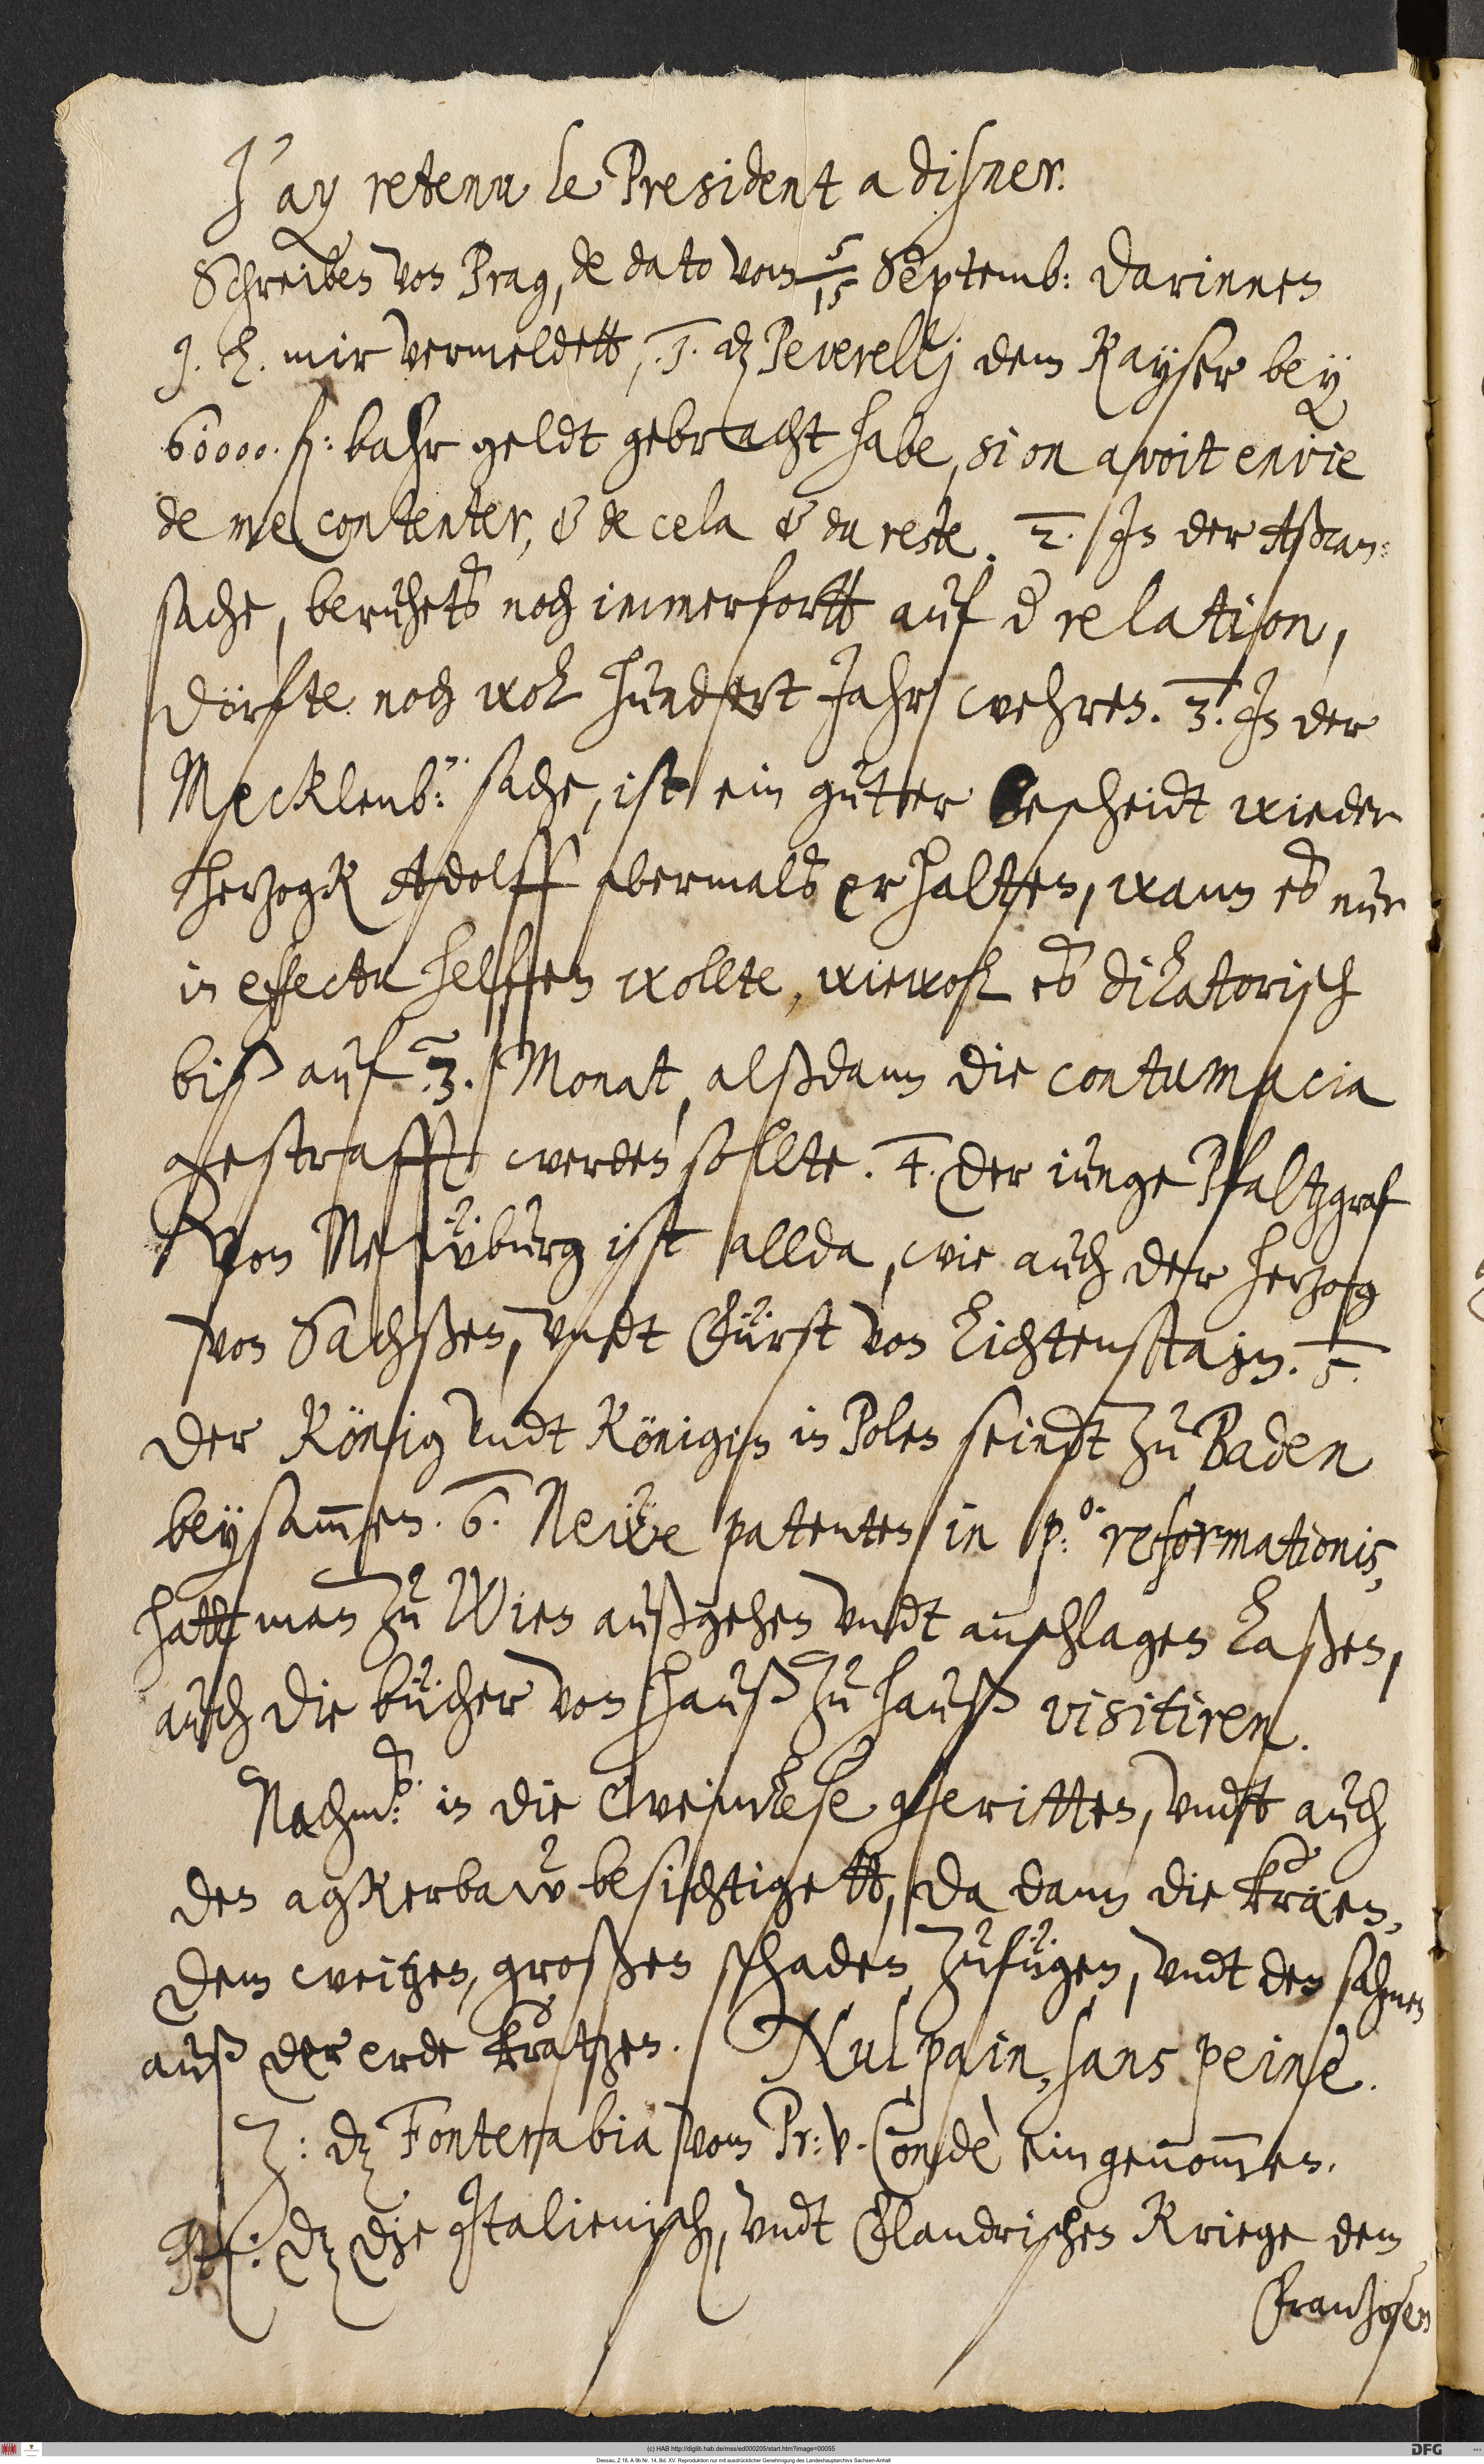 J'ay retenu le President a disner.
Schreiben von Prag, de dato vom 5/15 Septemb: darinnen
J. L. mir vermeldett, 1. dz Peverellj dem Kayser bey
60000. fl: bahr geldt gebracht habe, si on avoit envie
de me contenter, & de cela & du reste. 2. In der Aßcan:
sache, beruhets noch immerfortt auf d relation,
dörfte noch wol hundert Jahr wehren. 3. In der
Mecklenb: sache, ist ein gutter bescheidt wieder
herzogk Adolff abermals erhaltten, wann es nur
in effectu helffen wollte, wiewol es dilatorisch
biß auf 3. Monat, alßdann die contumacia
gestrafft werden sollte. 4. Der iunge Pfaltzgraf
von Neüburg ist allda, wie auch der herzog
von Sachßen, undt Fürst von Lichtenstain. 5.
Der König undt Königin in Polen seindt zu Baden
beysam̅en. 6. Neẅe patenten in p:o reformationis,
hatt man zu Wien außgehen undt anschlagen laßen,
auch die bücher von hauß zu hauß visitiren.
Nachm:s in die Weinlese geritten, undt auch
den agkerbaw besichtigett, da dann die kräen,
dem weitzen, großen schaden zufügen, undt den sahmen
auß der erde kratzen. Nul pain, sans peine.
Z: dz Fonterabia vom Pr: v. Condè eingenom̅en.
It: dz die Italienisch, undt Flandrischen Kriege dem
Frantzosen
(c) HAB http://diglib.hab.de/mss/ed000205/start.htm?image=00055
DFG
Dessau, Z 18, A 9b Nr. 14, Bd. XV. Reproduktion nur mit ausdrücklicher Genehmigung des Landeshauptarchivs Sachsen-Anhalt